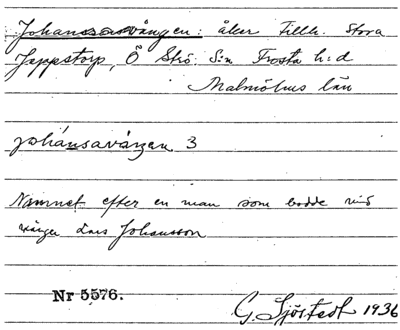 Johansavången: åker tillh. Stora
Jappstorp, Ö Strö S:n Frosta h:d
Malmöhus län
johánsavǻŋen 3
Namnet efter en man som bodde vid
vången Lars Johansson
Nr 5576.
G. Sjöstedt 1936